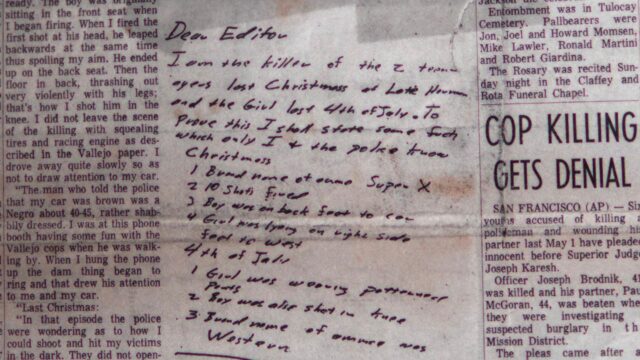 ready. The boy was originally
sitting in the front seat when
I began firing. When I fired the
first shot at his head, he leaped
backwards at the same time
thus spoiling my aim. He ended
up on the back seat. Then the
floor in back, thrashing out
very violently with his legs;
that's how I shot him in the
knee. I did not leave the scene
of the killing with squealing
tires and racing engine as de-
scribed in the Vallejo paper. I
drove away quite slowly so as
not to draw attention to my car.
"The man who told the police
that my car was brown was a
Negro about 40-45, rather shab-
bily dressed. I was at this phone
booth having some fun with the
Vallejo cops when he was walk-
ing by. When I hung the phone
up the dam thing began to
ring and that drew his attention
to me and my car.
"Last Christmas:
"In that episode the police
were wondering as to how I
could shoot and hit my victims
in the dark. They did not open-
Dear Editor
I am the killer of the 2 teen
agers last Christmass at Lake Herman
and the Girl last 4th of July. To
Prove this I shall state some facts
which only I + the police know
Christmass
1 Brand name of ammo Super X
2 10 Shots fired
3 Boy was on back feet to car
4 Girl was lying on right side
feet to west
4th of July
1 Girl was wearing patterned
Pants
2 Boy was also shot in knee
3 Brand name of ammo was
Western
Entombment was in Tulocay
Cemetery. Pallbearers were
Jon, Joel and Howard Momsen,
Mike Lawler, Ronald Martini
and Robert Giardina.
The Rosary was recited Sun-
day night in the Claffey and
Rota Funeral Chapel.
COP KILLING
GETS DENIAL
SAN FRANCISCO (AP) — Six
youths accused of killing
policeman and wounding his
partner last May 1 have pleaded
innocent before Superior Judge
Joseph Karesh.
Officer Joseph Brodnik, 41
was killed and his partner, Paul
McGoran, 44, was beaten when
they were investigating
suspected burglary in the
Mission District.
The pleas came after